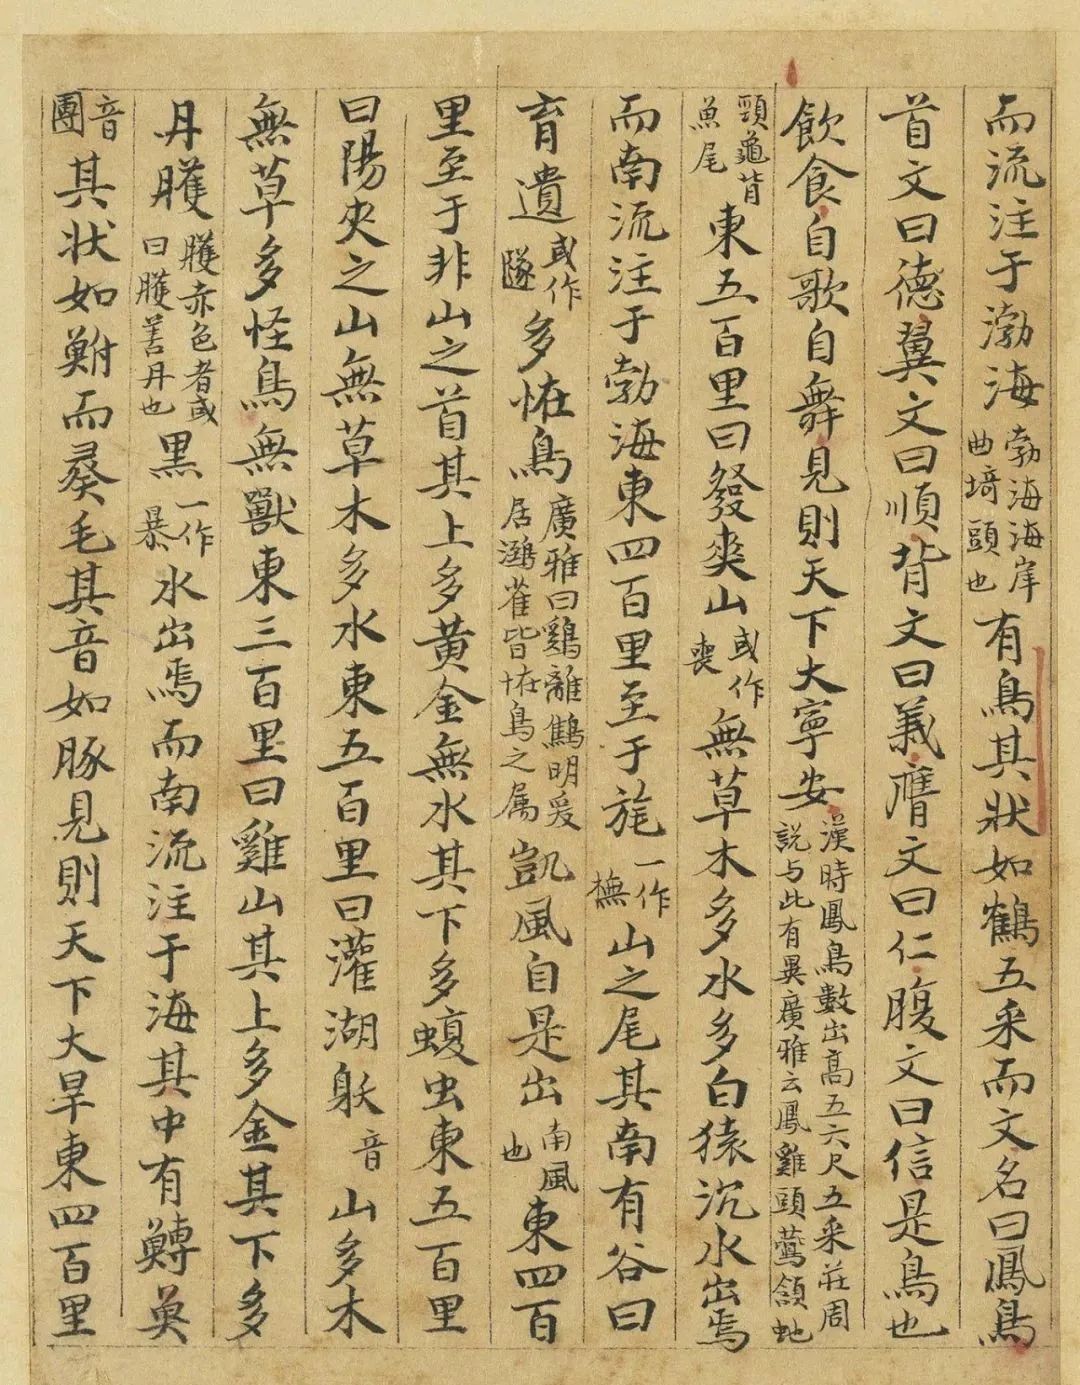 而流注于渤海渤海海岸曲埼頭也有鳥其狀如鶴五采而文名曰鳳鳥
首文曰德翼文曰順背文曰義膺文曰仁腹文曰信是鳥也
飲食自歌自舞見則天下大寧安漢時鳳鳥數出高五六尺五采莊周說与此有異廣雅云鳳雞頭鷰頷虵
頸龜背魚尾東五百里曰發爽山或作喪無草木多水多白猿沉水出焉
而南流注于勃海東四百里至于旄一作橅山之尾其南有谷曰
育遺或作隧多恠鳥廣雅曰鷄離鷦明爰居鵷雀皆恠鳥之属凱風自是出南風也東四百
里至于非山之首其上多黃金無水其下多蝮虫東五百里
曰陽夾之山無草木多水東五百里曰灌湖躲音山多木
無草多怪鳥無獸東三百里曰雞山其上多金其下多
丹雘雘赤色者或曰雘善丹也黑一作暴水出焉而南流注于海其中有鱄奐
音團其狀如鮒而彘毛其音如豚見則天下大旱東四百里